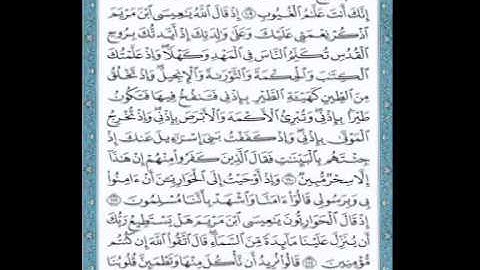 إِنَّكَ أَنتَ عَلَّٰمُ ٱلْغُيُوبِ ۝١٠٩ إِذْ قَالَ ٱللَّهُ يَٰعِيسَى ٱبْنَ مَرْيَمَ
ٱذْكُرْ نِعْمَتِى عَلَيْكَ وَعَلَىٰ وَٰلِدَتِكَ إِذْ أَيَّدتُّكَ بِرُوحِ
ٱلْقُدُسِ تُكَلِّمُ ٱلنَّاسَ فِى ٱلْمَهْدِ وَكَهْلًا ۖ وَإِذْ عَلَّمْتُكَ
ٱلْكِتَٰبَ وَٱلْحِكْمَةَ وَٱلتَّوْرَىٰةَ وَٱلْإِنجِيلَ ۖ وَإِذْ تَخْلُقُ
مِنَ ٱلطِّينِ كَهَيْـَٔةِ ٱلطَّيْرِ بِإِذْنِى فَتَنفُخُ فِيهَا فَتَكُونُ
طَيْرًۢا بِإِذْنِى ۖ وَتُبْرِئُ ٱلْأَكْمَهَ وَٱلْأَبْرَصَ بِإِذْنِى ۖ وَإِذْ تُخْرِجُ
ٱلْمَوْتَىٰ بِإِذْنِى ۖ وَإِذْ كَفَفْتُ بَنِىٓ إِسْرَٰٓءِيلَ عَنكَ إِذْ
جِئْتَهُم بِٱلْبَيِّنَٰتِ فَقَالَ ٱلَّذِينَ كَفَرُوا۟ مِنْهُمْ إِنْ هَٰذَآ
إِلَّا سِحْرٌ مُّبِينٌ ۝١١٠ وَإِذْ أَوْحَيْتُ إِلَى ٱلْحَوَارِيِّۦنَ أَنْ ءَامِنُوا۟
بِى وَبِرَسُولِى قَالُوٓا۟ ءَامَنَّا وَٱشْهَدْ بِأَنَّنَا مُسْلِمُونَ ۝١١١
إِذْ قَالَ ٱلْحَوَارِيُّونَ يَٰعِيسَى ٱبْنَ مَرْيَمَ هَلْ يَسْتَطِيعُ رَبُّكَ
أَن يُنَزِّلَ عَلَيْنَا مَآئِدَةً مِّنَ ٱلسَّمَآءِ ۖ قَالَ ٱتَّقُوا۟ ٱللَّهَ إِن كُنتُم
مُّؤْمِنِينَ ۝١١٢ قَالُوا۟ نُرِيدُ أَن نَّأْكُلَ مِنْهَا وَتَطْمَئِنَّ قُلُوبُنَا